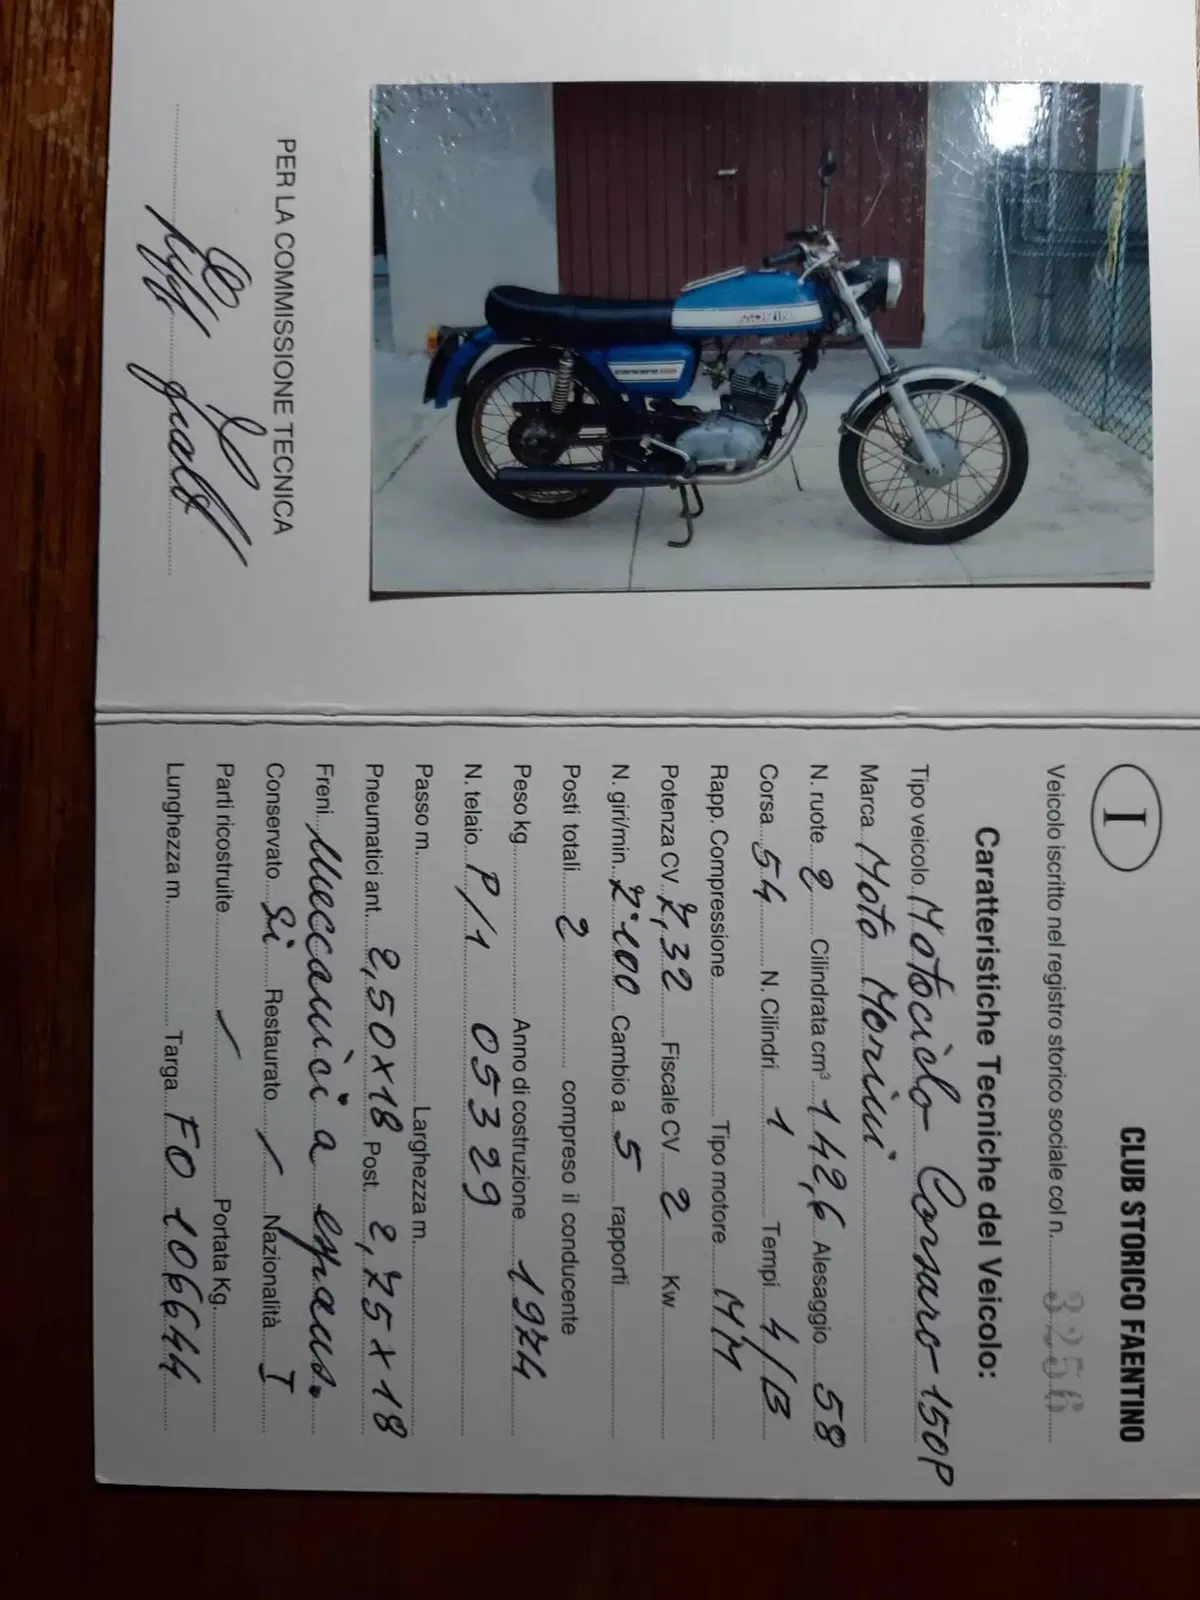 CLUB STORICO FAENTINO
I
Veicolo iscritto nel registro storico sociale col n. 3256
Caratteristiche Tecniche del Veicolo:
Tipo veicolo Motociclo Corsaro-150P
Marca Moto Morini
N. ruote 2 Cilindrata cm³ 142,6 Alesaggio 58
Corsa 54 N. Cilindri 1 Tempi 4/B
Rapp. Compressione Tipo motore MM
Potenza CV 7,32 Fiscale CV 2 Kw
N. giri/min. 7.100 Cambio a 5 rapporti
Posti totali 2 compreso il conducente
Peso kg Anno di costruzione 1974
N. telaio P/1 05329
Passo m. Larghezza m.
Pneumatici ant. 2,50x18 Post. 2,75x18
Freni Meccanici a espans.
Conservato Si Restaurato / Nazionalità I
Parti ricostruite / Portata Kg.
Lunghezza m. Targa FO 106644
MORINI
corsaro
PER LA COMMISSIONE TECNICA